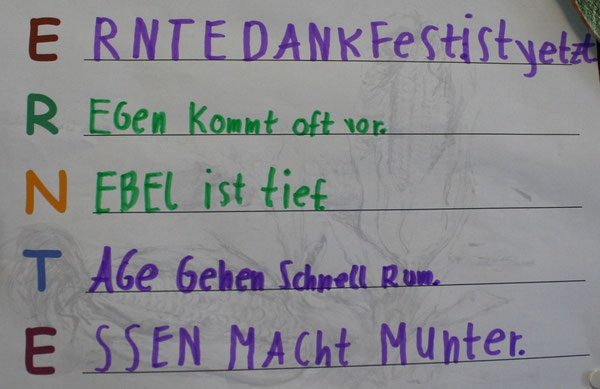 E RNTEDANKFestistyetzt
R EGen kommt oft vor.
N EBEL ist tief
T AGe Gehen Schnell Rum.
E SSEN MACht Munter.